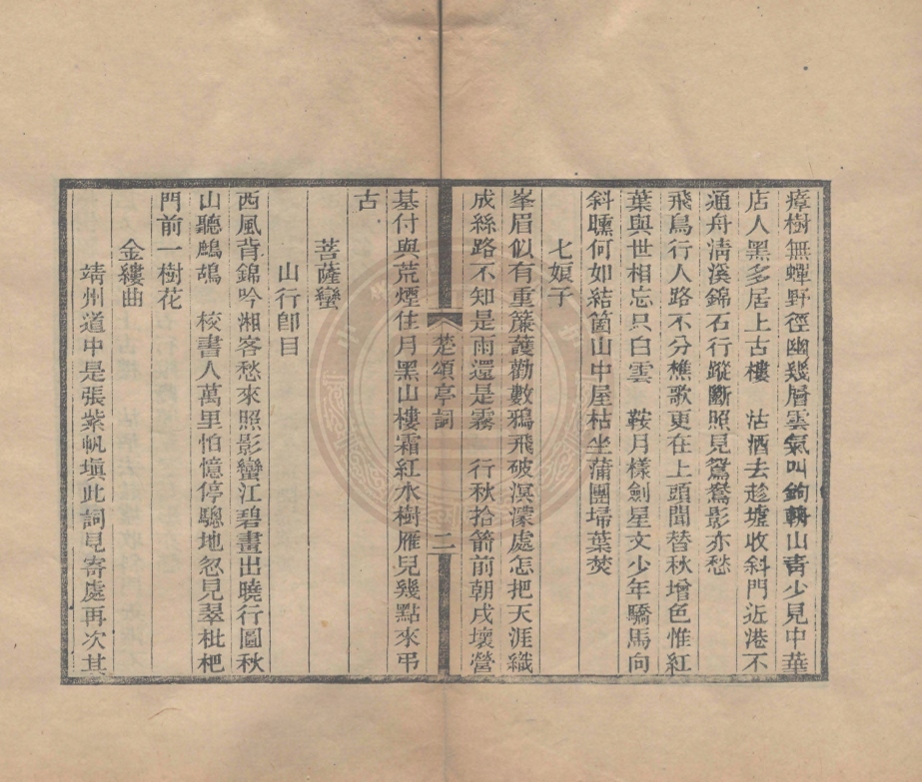 瘴樹無蟬野徑幽幾層雲氣叫鉤輈山青少見中華
店人黑多居上古樓　沽酒去趁墟收斜門近港不
通舟淸溪錦石行蹤斷照見鴛鴦影亦愁
飛鳥行人路不分樵歌更在上頭聞替秋增色惟紅
葉與世相忘只白雲　鞍月樣劍星文少年驕馬向
斜曛何如結箇山中屋枯坐蒲團埽葉焚
七娘子
峯眉似有重簾護勸數鴉飛破溟濛處怎把天涯織
成絲路不知是雨還是霧　行秋拾箭前朝戍壞營
基付與荒煙住月黑山樓霜紅水樹雁兒幾點來弔
古
楚頌亭詞
二
菩薩蠻
山行卽目
西風背錦吟湘客愁來照影蠻江碧畫出曉行圖秋
山聽鷓鴣　校書人萬里怕憶停驄地忽見翠枇杷
門前一樹花
金縷曲
靖州道中是張紫帆塡此詞見寄處再次其